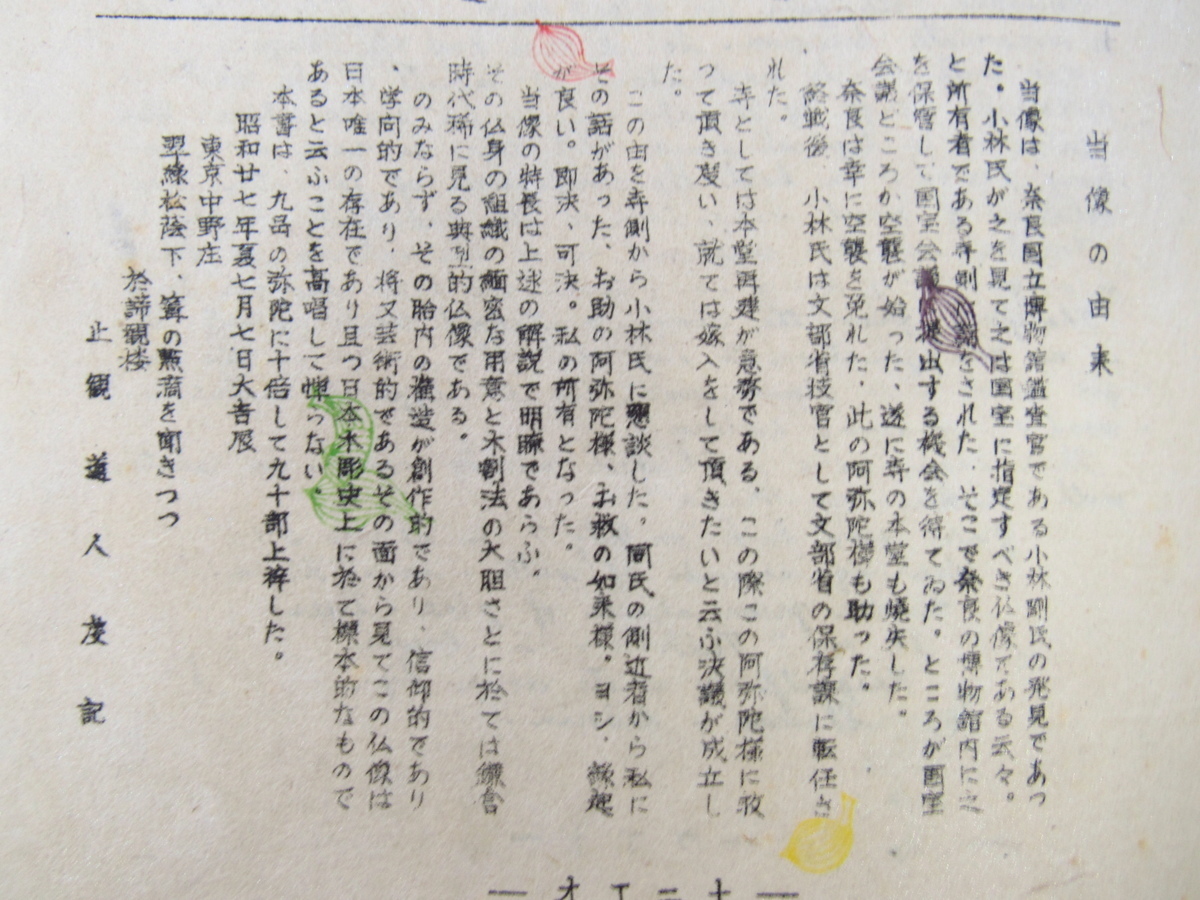 当像の由来
当像は、奈良国立博物館鑑査官である小林剛氏の発見であっ
た。小林氏が之を見て之は国宝に指定すべき仏像である云々。
と所有者である寺側 をされた、そこで奈良の博物館内に之
を保管して国宝会議 提出する機会を待てゐた。ところが国宝
会議どころか空襲が始った、遂に寺の本堂も焼失した。
奈良は幸に空襲を免れた、此の阿弥陀様も助った。
終戦後、小林氏は文部省技官として文部省の保存課に転任さ
れた。
寺としては本堂再建が急務である、この際この阿弥陀様に救
って頂き度い、就ては嫁入をして頂きたいと云ふ決議が成立し
た。
この由を寺側から小林氏に懇談した。同氏の側近者から私に
その話があった、お助の阿弥陀様、お救の如来様。ヨシ、
が良い。即決、可決。私の所有となった。
当像の特長は上述の解説で明瞭であらふ。
その仏身の組織の緬密な用意と木割法の大胆さとに於ては鎌倉
時代稀に見る典型的仏像である。
のみならず、その胎内の 造が創作的であり、信仰的であり
、学問的であり、将又芸術的であるその面から見てこの仏像は
日本唯一の存在であり且つ日本木彫史上に於て標本的なもので
あると云ふことを高唱して憚らない。
本書は、九品の弥陀に十倍して九十部上梓した。
昭和廿七年夏七月七日大吉辰
東京中野庄
翠緑松蔭下、 の を聞きつつ
於諦観楼
止観道人 記
— 十二丁オ —